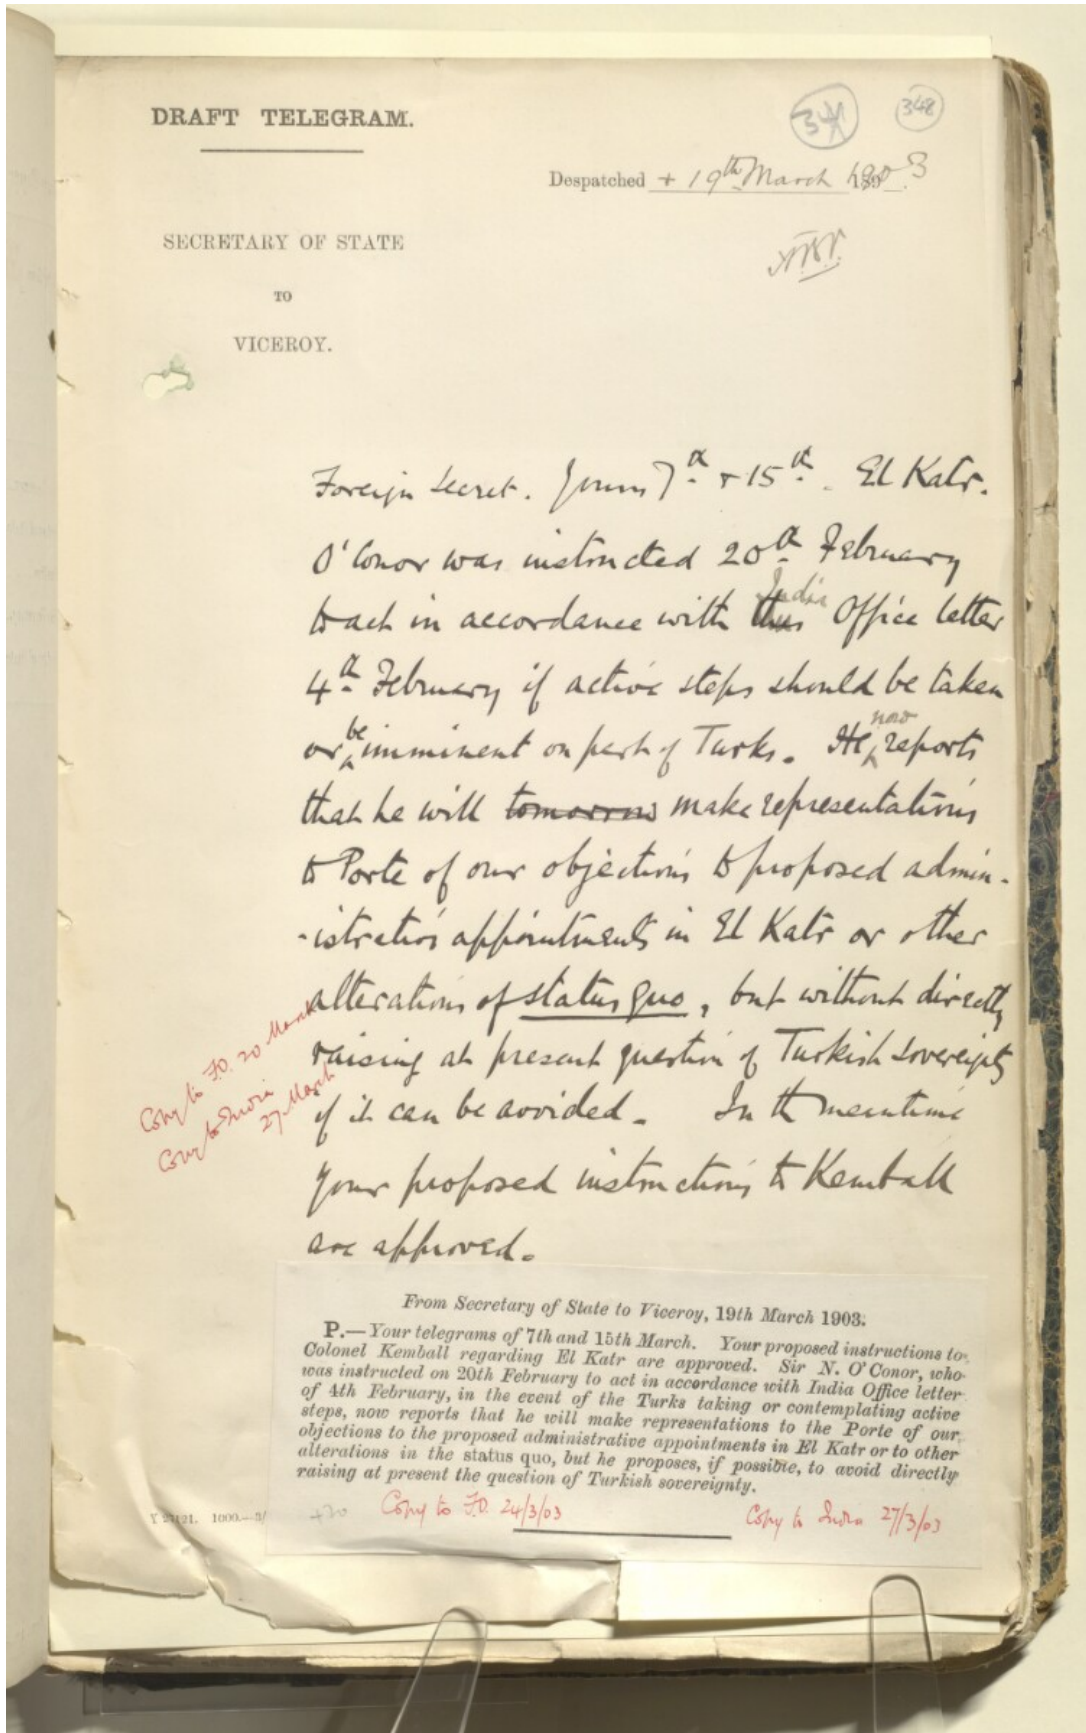 DRAFT TELEGRAM.
348
Despatched + 19th March 1903
SECRETARY OF STATE
TO
VICEROY.
Foreign Secret. Yours 7th + 15th. El Katr.
O'Conor was instructed 20th February
to act in accordance with India Office letter
4th February if active steps should be taken
or be imminent on part of Turks. He now reports
that he will tomorrow make representations
to Porte of our objections to proposed admin-
-istrative appointments in El Katr or other
alterations of status quo, but without directly
raising at present question of Turkish sovereignty
if it can be avoided. In the meantime
your proposed instructions to Kemball
are approved.
Copy to F.O. 20 March
Copy to India
27 March
From Secretary of State to Viceroy, 19th March 1903.
P.—Your telegrams of 7th and 15th March. Your proposed instructions to
Colonel Kemball regarding El Katr are approved. Sir N. O'Conor, who
was instructed on 20th February to act in accordance with India Office letter
of 4th February, in the event of the Turks taking or contemplating active
steps, now reports that he will make representations to the Porte of our
objections to the proposed administrative appointments in El Katr or to other
alterations in the status quo, but he proposes, if possible, to avoid directly
raising at present the question of Turkish sovereignty.
Copy to F.O. 24/3/03
Copy to India 27/3/03
1000.—3/